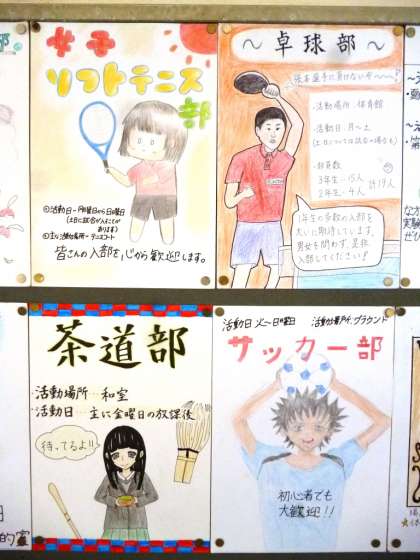 女子
ソフトテニス
部
①活動日…月曜日から日曜日
(土日に試合が入ることが
あります)
②主な活動場所…テニスコート
皆さんの入部を、心から歓迎します。
～卓球部～
張本選手に負けないぞ～!
・活動場所:体育館
・活動日:月～土
(土日については試合の場合も)
・部員数
3年生…15人
2年生…4人
計19人
1年生の多数の入部を
大いに期待しています。
男女を問わず、是非
入部してください!
茶道部
・活動場所…和室
・活動日…主に金曜日の放課後
待ってるよ!!
活動日:火～日曜日
活動場所:グラウンド
サッカー部
初心者でも
大歓迎!!
部